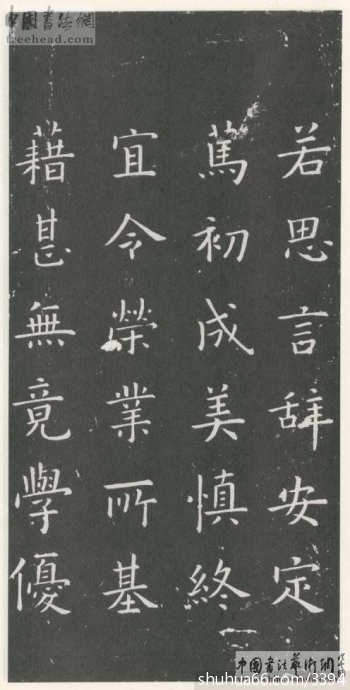 中國書法網
freehead.com
若思言辞安定
篤初成美慎終
宜令榮業所基
藉甚無竟學優
中國書法藝術網
shuhua66.com/3394